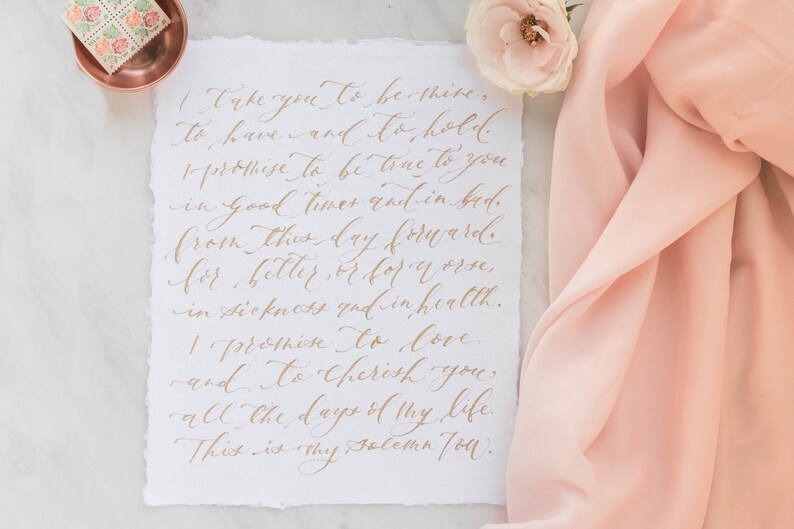 I take you to be mine,
to have and to hold.
I promise to be true to you
in good times and in bad,
from this day forward,
for better, or for worse,
in sickness and in health.
I promise to love
and to cherish you,
all the days of my life.
This is my solemn vow.